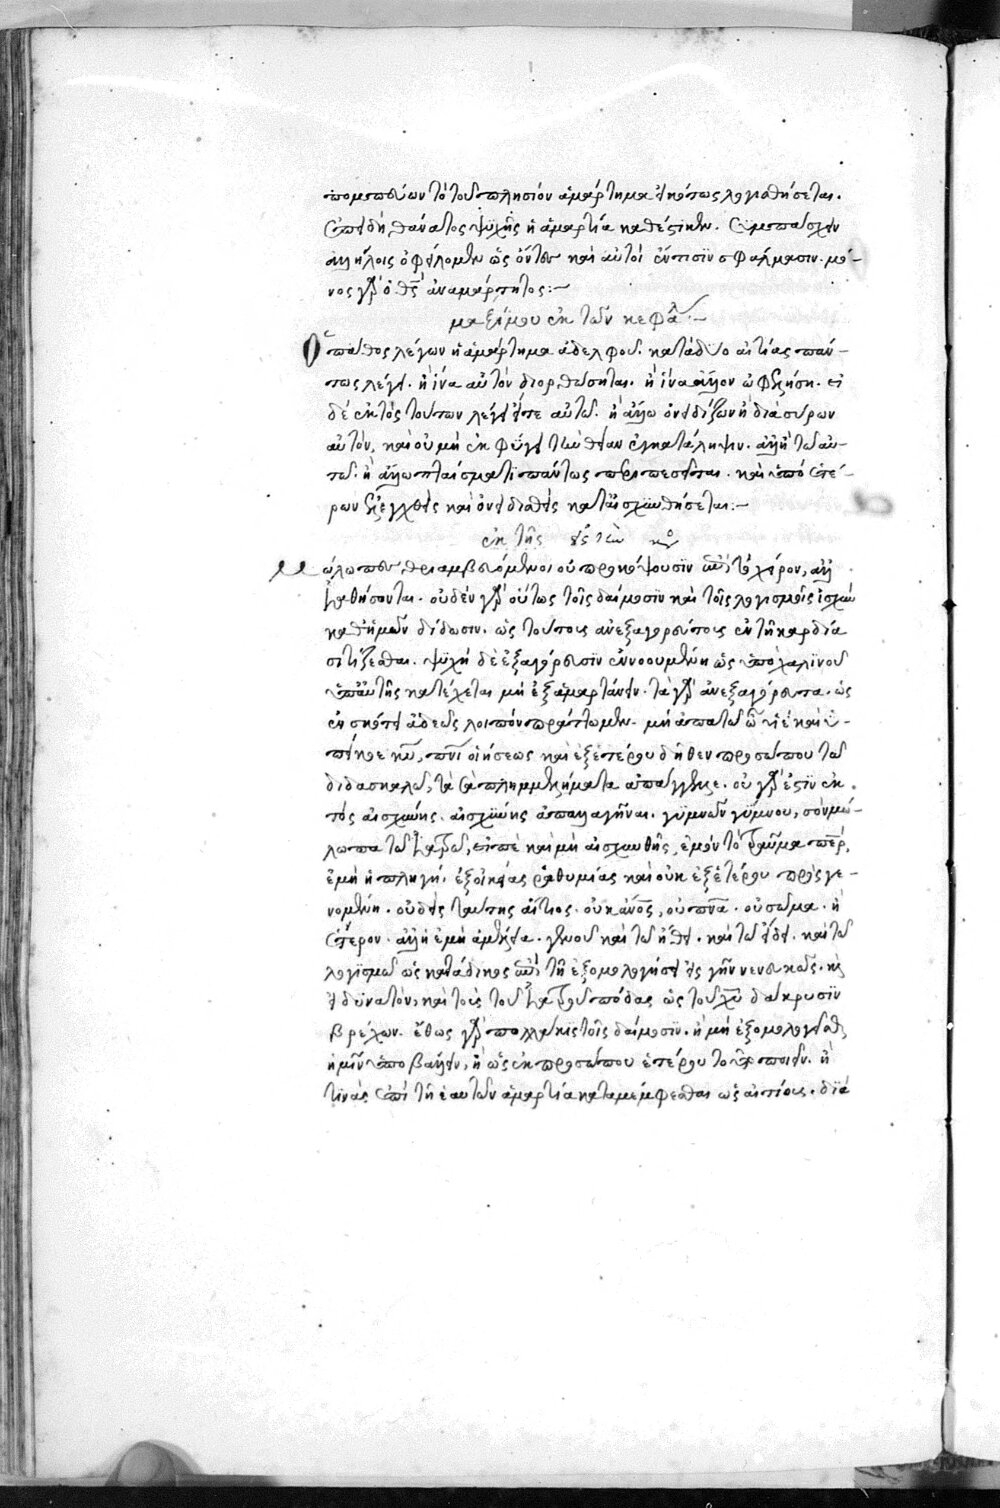 πομπεύων τὸ τοῦ πλησίον ἁμάρτημα λογισθήσεται.
ἐπειδὴ θάνατος ψυχῆς ἡ ἁμαρτία καθέστηκεν. συμπάσχειν
ἀλλήλοις ὀφείλομεν ὡς ὄντες καὶ αὐτοὶ ἔν τισιν σφάλμασιν. μό-
νος γὰρ ὁ θς ἀναμάρτητος:-
μαξίμου ἐκ τῶν κεφα:-
Ὁ πάθος λέγων ἢ ἁμάρτημα ἀδελφοῦ. κατὰ δύο αἰτίας πάν-
τως λέγει. ἢ ἵνα αὐτὸν διορθώσηται. ἢ ἵνα ἄλλον ὠφελήσῃ. εἰ
δὲ ἐκτὸς τούτων λέγει εἴτε αὐτῷ. ἢ ἄλλῳ ὀνειδίζων ἢ διασύρων
αὐτόν, καὶ οὐ μὴ ἐκφύγει τὴν θείαν ἐγκατάληψιν. ἀλλ' ἢ τῷ αὐ-
τῷ. ἢ ἄλλῳ πταίσματι πάντως περιπεσεῖται. καὶ ὑπὸ ἑτέ-
ρων ἐλεγχθεὶς καὶ ὀνειδισθεὶς καταισχυνθήσεται:-
ἐκ τῆς
Μώλωπες θριαμβευόμενοι οὐ προκόψουσιν ἐπὶ τὸ χεῖρον, ἀλλ'
ἰαθήσονται. οὐδὲν γὰρ οὕτως τοῖς δαίμοσιν καὶ τοῖς λογισμοῖς ἰσχὺν
καθ' ἡμῶν δίδωσιν. ὡς τούτοις ἀνεξαγορεύτοις ἐν τῇ καρδίᾳ
σιτίζεσθαι. ψυχὴ δὲ ἐξαγόρευσιν ἐννοουμένη ὡς ὑπὸ χαλινοῦ
ὑπ' αὐτῆς κατέχεται μὴ ἐξαμαρτάνειν. τὰ γὰρ ἀνεξαγόρευτα. ὡς
ἐν σκότει ἀδεῶς λοιπὸν πράττομεν. μὴ ἀπατῶ υἱὲ καὶ ὑ-
πήκοε κυ, πνι οἰήσεως καὶ ἐξ ἑτέρου δῆθεν προσώπου τῷ
διδασκάλῳ, τὰ σὰ πλημμελήματα ἀπάγγελλε. οὐ γὰρ ἔστιν ἐκ-
τὸς αἰσχύνης. αἰσχύνης ἀπαλλαγῆναι. γύμνου γύμνου, σὸν μώ-
λωπα τῷ ἰατρῷ, εἰπὲ καὶ μὴ αἰσχυνθῇς, ἐμὸν τὸ τραῦμα περ,
ἐμὴ ἡ πληγή. ἐξ οἰκείας ῥαθυμίας καὶ οὐκ ἐξ ἑτέρου προσγε-
νομένη. οὐδεὶς ταύτης αἴτιος. οὐκ ανος, οὐ πνα. οὐ σῶμα. ἢ
ἕτερον. ἀλλ' ἡ ἐμὴ ἀμέλεια. γίνου καὶ τῷ ἤθει. καὶ τῷ εἴδει. καὶ τῷ
λογισμῷ ὡς κατάδικος ἐπὶ τῇ ἐξομολογήσει εἰς γῆν νενευκώς. καὶ
εἰ δυνατόν, καὶ τοὺς τοῦ ἰατροῦ πόδας ὡς τοῦ χυ δάκρυσιν
βρέχων. ἔθος γὰρ πολλάκις τοῖς δαίμοσιν. ἢ μὴ ἐξομολογεῖσθαι
ἡμῖν ὑποβάλλειν, ἢ ὡς ἐκ προσώπου ἑτέρου τοῦτο ποιεῖν. ἢ
τινὰς ἐπὶ τῇ ἑαυτῶν ἁμαρτίᾳ καταμέμφεσθαι ὡς αἰτίους. διὰ